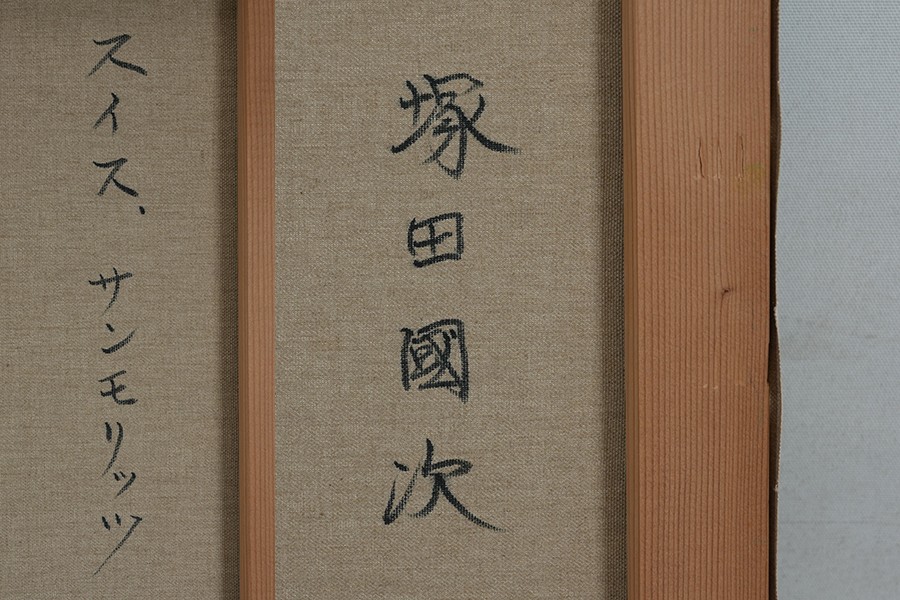 塚田國次
スイス、サンモリッツ